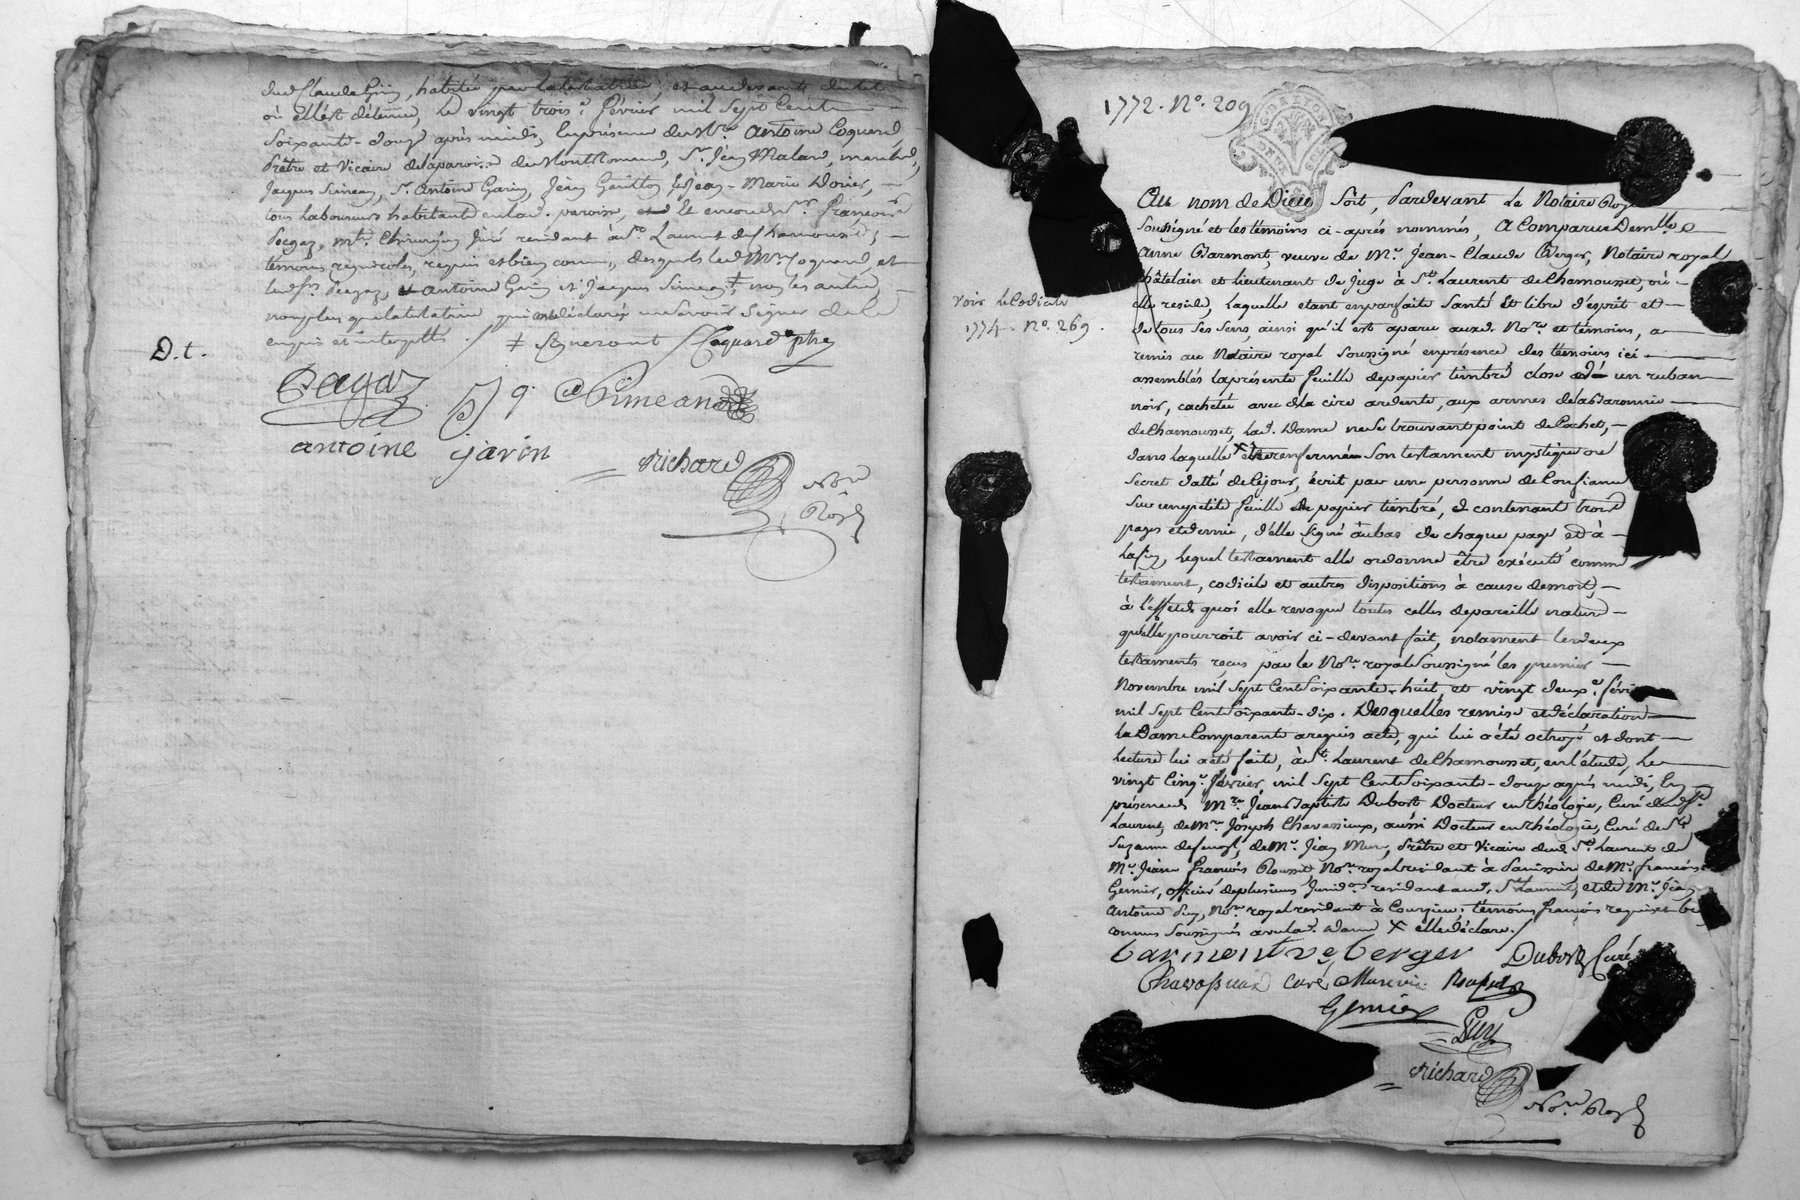 dud. Claude Grin, habitée par la testatrice, et audevant du lit
où elle est détenue, le vingt trois.e février mil sept Cent
Soixante-douze après midi, en présence de M.re Antoine Coquard,
Prêtre et Vicaire de la paroisse de Montromand, S.r Jean Malard, marchand,
Jacques Simean, S.r Antoine Garin, Jean Gariton et Jean-Marie Dorier,
tous Laboureurs habitants en lad. paroisse, et encore de S.r françois
Pegaz, m.e Chirurgien Juré residant à S.t Laurent de Chamousset,
témoins requis et bien connus, desquels led. M.re Coquard, et
led. S.r Pegaz, Antoine Garin et Jacques Simean ‡, non les autres
non plus que la testatrice qui ont déclaré ne savoir signer de ce
enquis et interpellés. / ‡ signeront / Coquard ptre
D. t.
Pegaz J q. Simeand
antoine garin
Richard
No.re
Roy.l
1772. N.o 209
GENERATION DE LYON
Au nom de Dieu soit, Pardevant Le Notaire Roy.
Soussigné et les témoins ci-après nommés, A Comparue Dem.lle
Anne Barmont, veuve de M.e Jean-Claude Berger, Notaire royal
Châtelain et Lieutenant de Juge à S.t Laurent de Chamousset, où
elle reside, laquelle etant en parfaite santé et libre d'esprit et
de tous ses sens, ainsi qu'il est aparu aud. No.re et témoins, a
voir le Codicile
1774. N.o 269.
remis au Notaire royal soussigné en présence des témoins ici
assemblés la présente feuille de papier timbré close d'un ruban
noir, cacheté avec de la cire ardente, aux armes de la Baronnie
de Chamousset, lad. Dame ne se trouvant point de Cachet,
dans laquelle X être renfermé son testament mystique ou
secret datté de ce jour, écrit par une personne de confiance
sur une petite feuille de papier timbré, et contenant trois
pages et demie, d'elle signé au bas de chaque page et à
la fin, lequel testament elle ordonne être exécuté comme
testament, codicile et autres dispositions à cause de mort,
à l'effet de quoi elle revoque toutes celles de pareille nature
qu'elle pourroit avoir ci-devant fait, notament les deux
testaments reçus par le No.re royal soussigné les premier
Novembre mil sept Cent soixante-huit, et vingt deux.e fév
mil sept Cent soixante-dix. Desquelles remise et déclaration
la Dame Comparante a requis acte, qui lui a été octroyé et dont
lecture lui a été faite, à S.t Laurent de Chamousset, en l'étude, Le
vingt cinq.e février, mil sept Cent soixante-douze après midi, en
présence de M.re Jean Baptiste Dubost Docteur en théologie, Curé dud. S.t
Laurent, de M.re Joseph Chavassieux, aussi Docteur en théologie, Curé de S.te
Suzanne, de M.e Jean Mure, Prêtre et Vicaire dud. S.t Laurent de
M.e Jean françois Roussit No.re royal residant à Panissière, de M.e françois
Genier, officier de plusieurs Jurid.ons residant aud. S.t Laurent, et de M.e Jean
Antoine Puy, No.re royal residant à Courzieu, témoins français requis et bi
connus soussignés avec lad. Dame X elle déclare.
barmont ve berger Dubost Curé
Chavassieux curé Mure vic.
Genier
Puy
Richard
No.re Roy.l